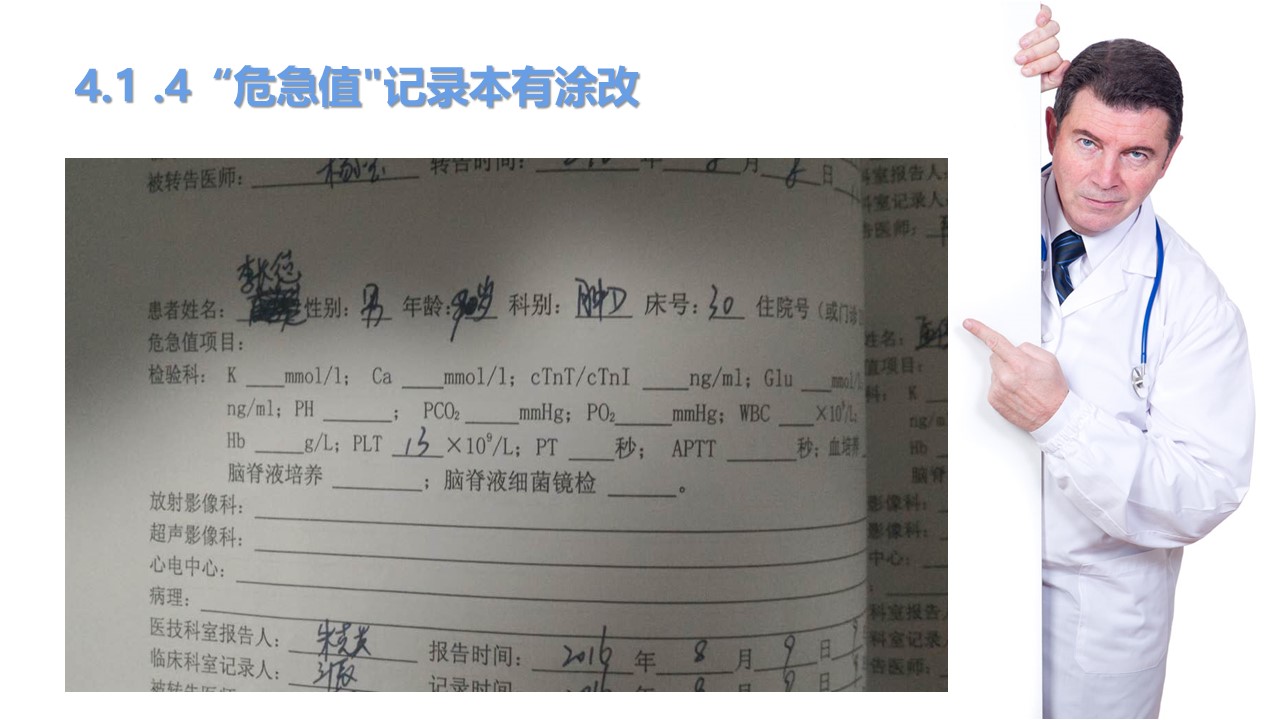 4.1 .4 “危急值"记录本有涂改
被转告医师： 转告时间： 年 8 月 8 日
患者姓名： 性别：男 年龄： 岁 科别：肿 床号：30 住院号（或门诊
危急值项目：
检验科： K ____mmol/l； Ca ____mmol/l；cTnT/cTnI ____ng/ml；Glu ___mmol/l
ng/ml；PH ______； PCO₂ _____mmHg；PO₂_____mmHg；WBC ___×10⁹/L；
Hb ____g/L；PLT 13 ×10⁹/L；PT ____秒； APTT ______秒；血培养
脑脊液培养 ________；脑脊液细菌镜检 ______。
放射影像科：
超声影像科：
心电中心：
病理：
医技科室报告人： 报告时间： 2016 年 8 月 9 日
临床科室记录人： 记录时间 2016 年 8 月 9 日
被转告医师
科室报告人
科室记录人
告医师：
姓名：
值项目：
科： K
ng/m
Hb
脑脊
影像科：
影像科：
中心：
科室报告人
科室记录
告医师：